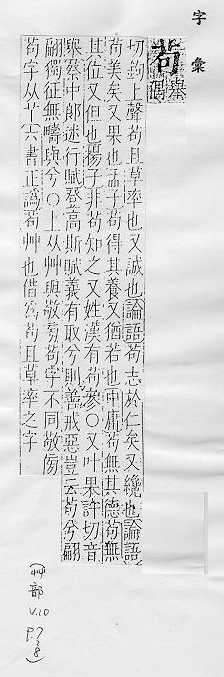 字彙
苟 舉偶
切鉤上聲苟且草率也又誠也論語苟志於仁矣又纔也論語
苟美矣又果也孟子苟得其養又猶若也中庸苟無其德苟無
其位又但也揚子非苟知之又姓漢有苟參○又叶果許切音
與蔡中郎述行賦登高斯賦義有取兮則善戒惡豈云苟兮翩
翩獨征無疇與兮○上从艸與敬芻苟字不同敬傍
苟字从丫六書正譌苟艸也借爲苟且草率之字
(艸部
V.10
P.7